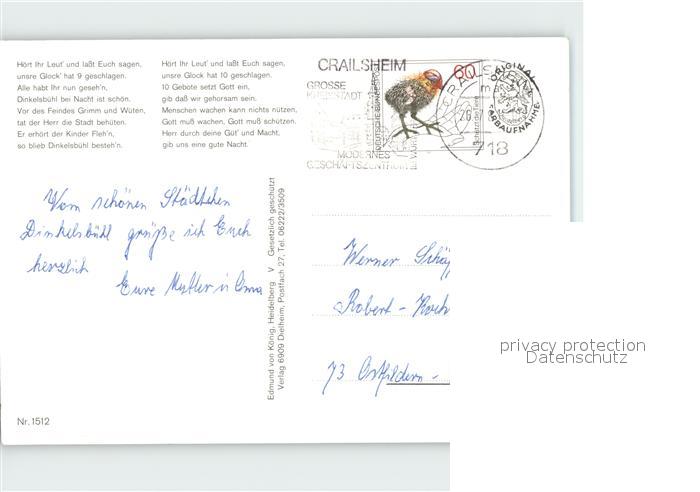 Hört Ihr Leut' und laßt Euch sagen,
unsre Glock' hat 9 geschlagen.
Alle habt Ihr nun geseh'n,
Dinkelsbühl bei Nacht ist schön.
Vor des Feindes Grimm und Wüten,
tat der Herr die Stadt behüten.
Er erhört der Kinder Fleh'n,
so blieb Dinkelsbühl besteh'n.
Hört Ihr Leut' und laßt Euch sagen,
unsre Glock hat 10 geschlagen.
10 Gebote setzt Gott ein,
gib daß wir gehorsam sein.
Menschen wachen kann nichts nützen,
Gott muß wachen, Gott muß schützen.
Herr durch deine Güt' und Macht,
gib uns eine gute Nacht.
CRAILSHEIM
GROSSE
MODERNES
GESCHÄFTSZENTRUM
60
DEUTSCHE BUNDESPOST
718
ORIGINAL
FARBAUFNAHME
Vom schönen Städtchen
Dinkelsbühl grüße ich Euch
herzlich
Eure Mutter u. Oma
Edmund von König, Heidelberg V Gesetzlich geschützt
Verlag 6909 Dielheim, Postfach 27, Tel. 06222/3509
Werner
Robert-Koch
73 Ostfildern -
privacy protection
Datenschutz
Nr. 1512